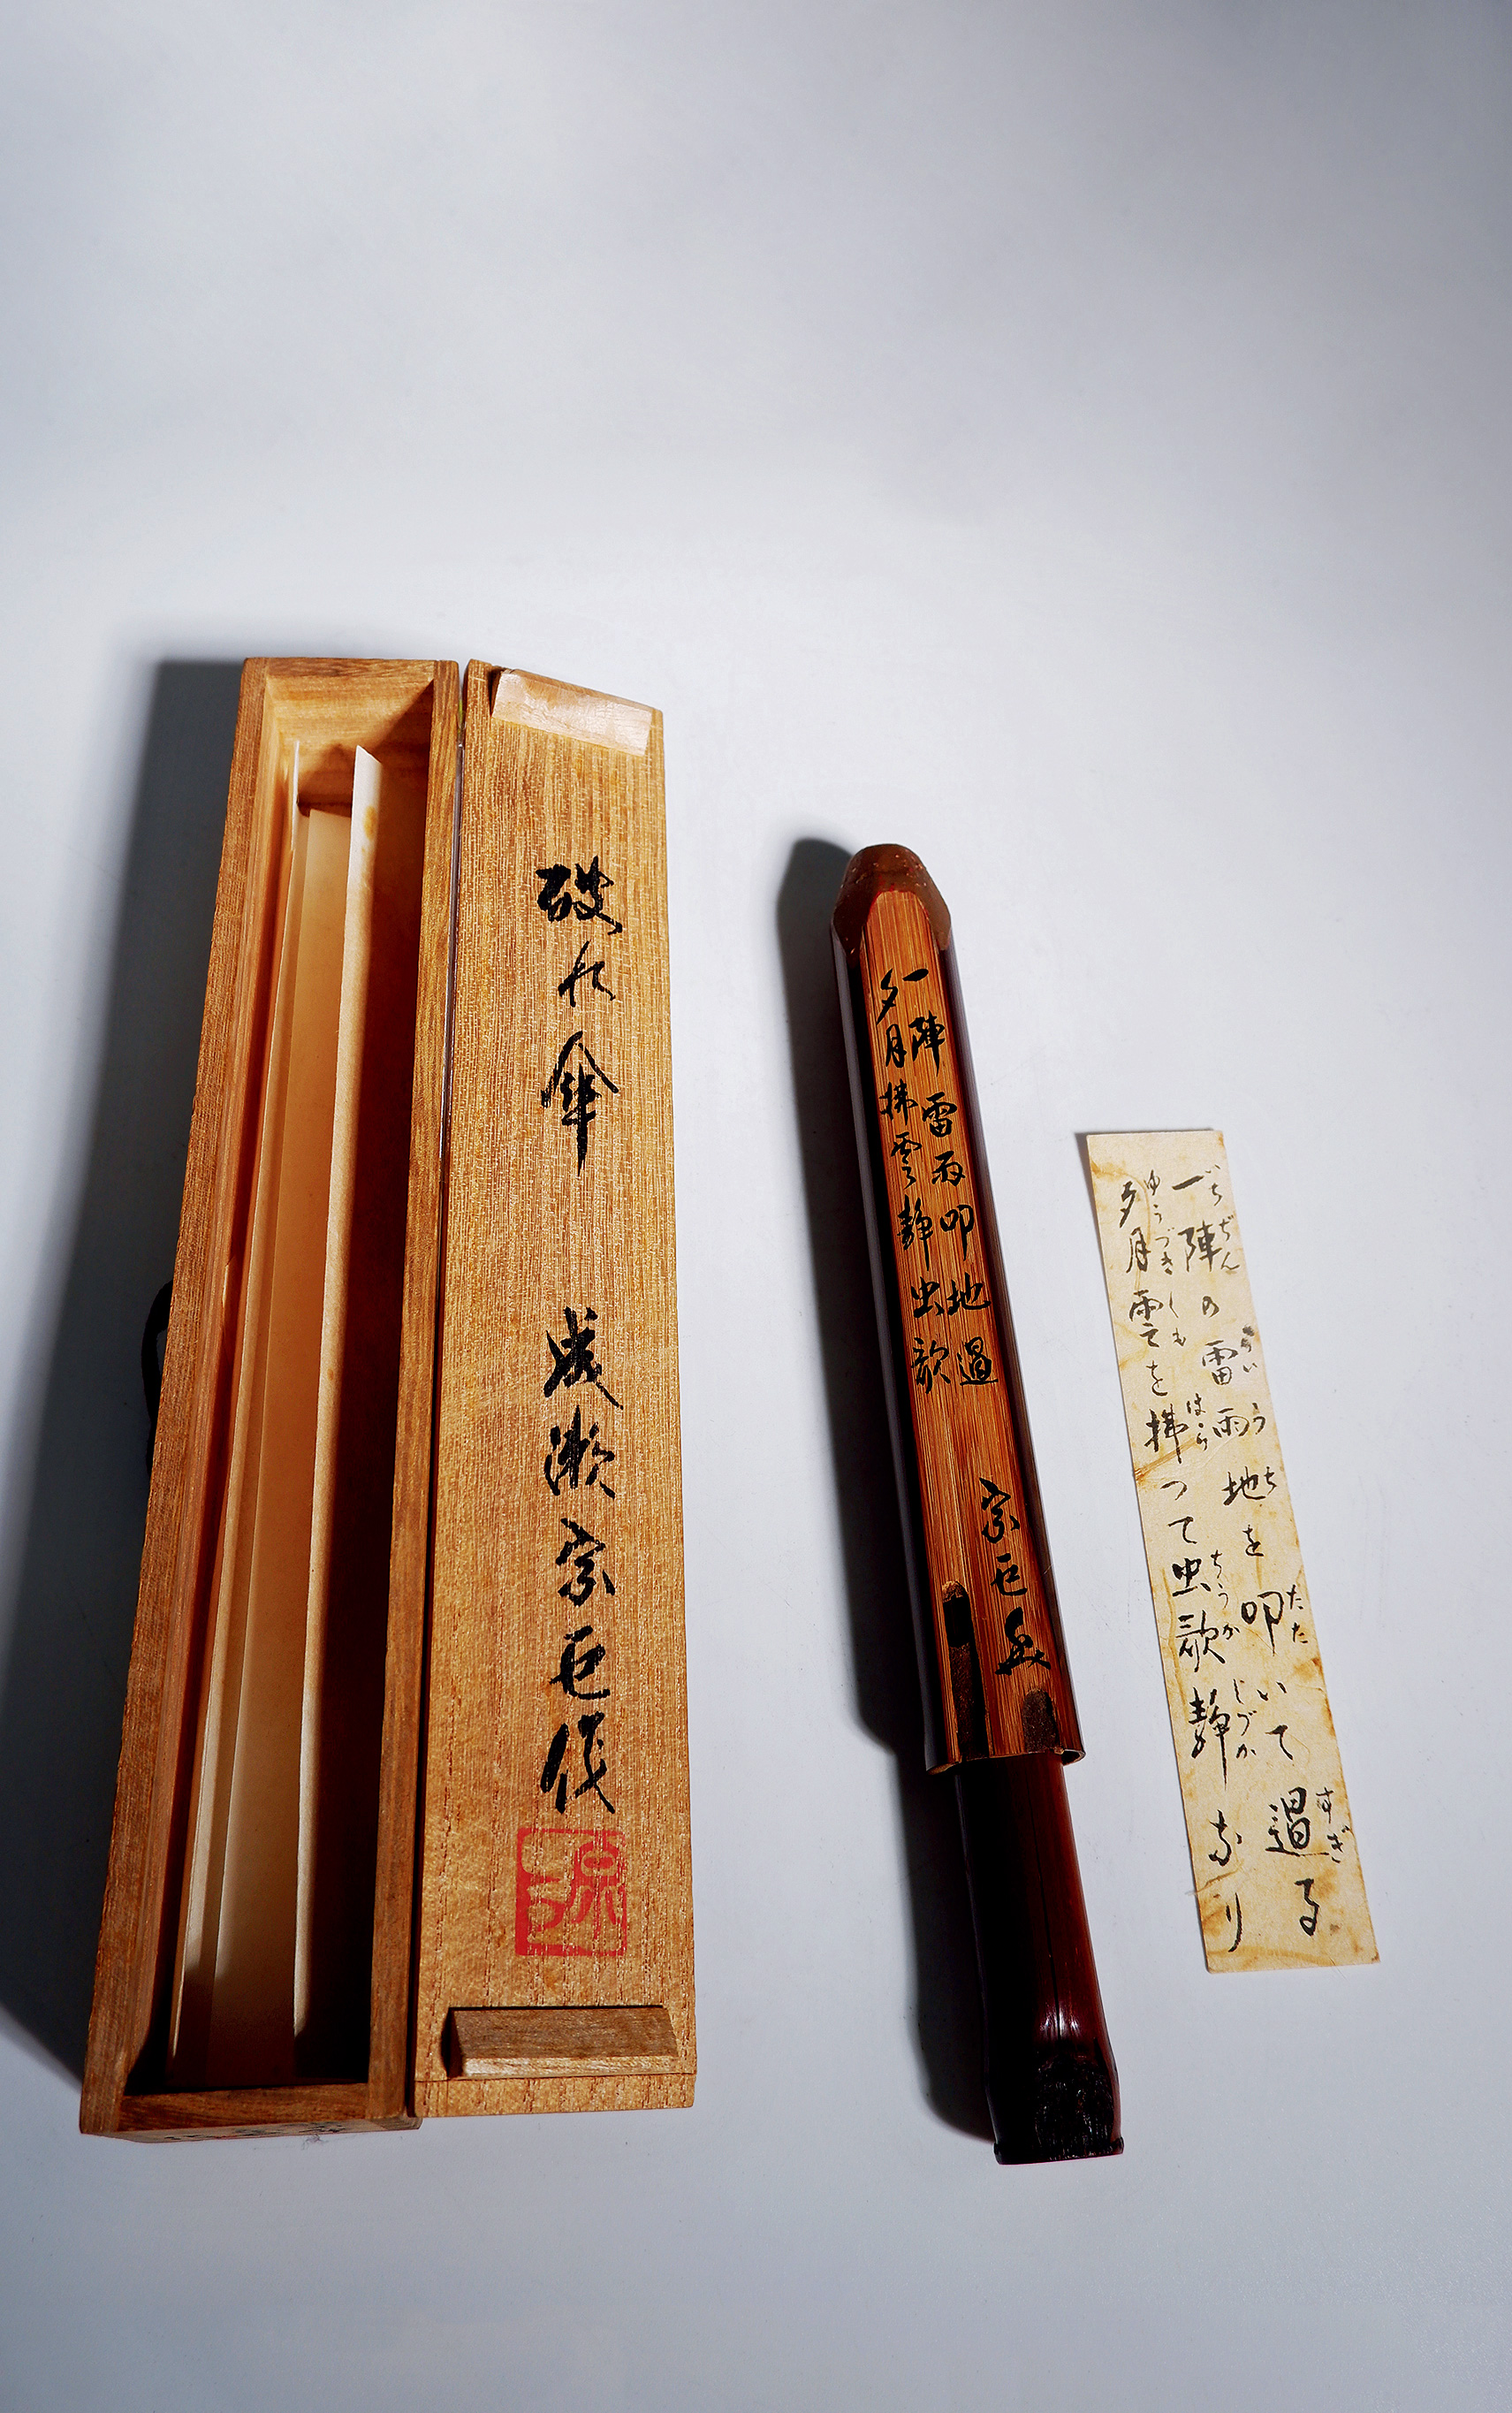 破れ傘 成瀬宗巨作
一陣雷雨叩地過
夕月拂雲静虫歌
宗巨
一陣の雷雨地を叩いて過る
いちぢん らいう ち たた すぎ
夕月雲を拂つて虫歌静なり
ゆうづき くも はら ちうか しづか